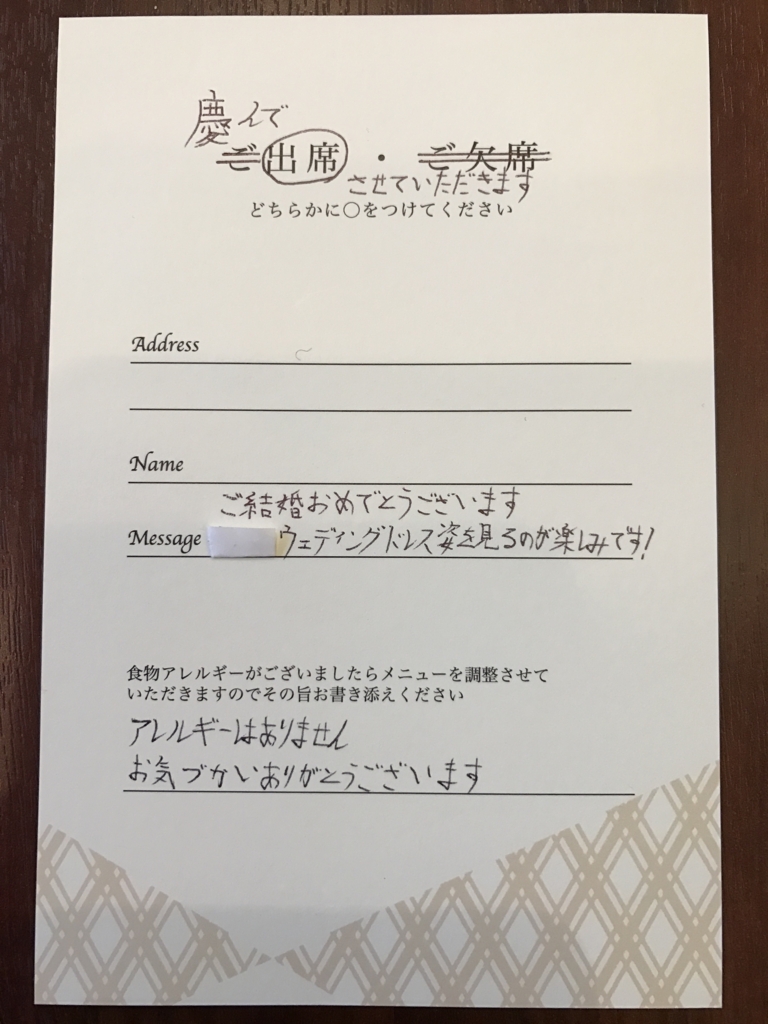 慶んで
ご出席・ご欠席
させていただきます
どちらかに〇をつけてください
Address
Name
ご結婚おめでとうございます
Message ウェディングドレス姿を見るのが楽しみです!
食物アレルギーがございましたらメニューを調整させて
いただきますのでその旨お書き添えください
アレルギーはありません
お気づかいありがとうございます